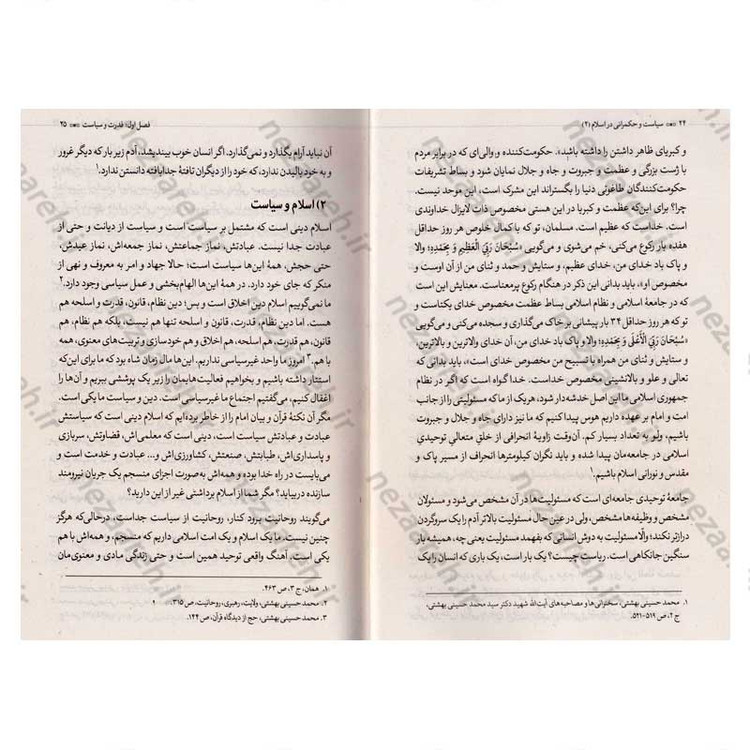 ۲۴ سیاست و حکمرانی در اسلام (۲)
و کبریای ظاهر داشتن را داشته باشد». حکومت‌کننده و والی‌ای که در برابر مردم
با ژست بزرگی و عظمت و جبروت و جاه و جلال نمایان شود و بساط تشریفات
حکومت‌کنندگان طاغوتی دنیا را بگستراند این مشرک است، این موحد نیست.
چرا؟ برای این‌که عظمت و کبریا در این هستی مخصوص ذات لایزال خداوندی
است. خداست که عظیم است. مسلمان، تو که با کمال خلوص هر روز حداقل
هفده بار رکوع می‌کنی، خم می‌شوی و می‌گویی «سُبْحَانَ رَبِّيَ الْعَظِيمِ وَ بِحَمْدِهِ» والا
و پاک باد خدای من، خدای عظیم، و ستایش و حمد و ثنای من از آن اوست و
مخصوص او»، باید بدانی این ذکر در هنگام رکوع پرمعناست. معنایش این است
که در جامعهٔ اسلامی و نظام اسلامی بساط عظمت مخصوص خدای یکتاست و
تو که هر روز حداقل ۳۴ بار پیشانی بر خاک می‌گذاری و سجده می‌کنی و می‌گویی
«سُبْحَانَ رَبِّيَ الْأَعْلَى وَ بِحَمْدِهِ» والا و پاک باد خدای من، آن خدای والاترین و بالاترین،
و ستایش و ثنای من همراه با تسبیح من مخصوص خدا است»، باید بدانی که
تعالی و علو و بالانشینی مخصوص خداست. خدا گواه است که اگر در نظام
جمهوری اسلامی ما این اصل خدشه‌دار شود، هریک از ما که مسئولیتی را از جانب
امت و امام بر عهده داریم هوس پیدا کنیم که ما نیز دارای جاه و جلال و جبروت
باشیم، ولو به تعداد بسیار کم، آن‌وقت زاویهٔ انحرافی از خلقِ متعالی توحیدی
در جامعه‌مان پیدا شده و باید نگران کیلومترها انحراف از مسیر پاک و
مقدس و نورانی اسلام باشیم.۱
جامعهٔ توحیدی جامعه‌ای است که مسئولیت‌ها در آن مشخص می‌شود و مسئولان
مشخص و وظیفه‌ها مشخص، ولی در عین حال مسئولیت بالاتر آدم را یک سروگردن
درازتر نکند؛ والّا مسئولیت به دوش انسانی که بفهمد مسئولیت یعنی چه، همیشه بار
سنگین جانکاهی است. ریاست چیست؟ یک بار است، یک باری که انسان را یک
۱. محمد حسینی بهشتی، سخنرانی‌ها و مصاحبه‌های آیت‌الله شهید دکتر سید محمد حسینی بهشتی،
ج ۲، ص ۵۱۹-۵۲۱.
فصل اول: قدرت و سیاست ۲۵
آن نباید آرام بگذارد و نمی‌گذارد. اگر انسان خوب بیندیشد، آدم زیر بار که دیگر غرور
و به خود بالیدن ندارد، که خود را از دیگران تافتهٔ جدابافته دانستن ندارد.۱
۲) اسلام و سیاست
اسلام دینی است که مشتمل بر سیاست است و سیاست از دیانت و حتی از
عبادت جدا نیست. عبادتش، نماز جماعتش، نماز جمعه‌اش، نماز عیدش،
حتی حجش، همهٔ این‌ها سیاست است؛ حالا جهاد و امر به معروف و نهی از
منکر که جای خود دارد. در همهٔ این‌ها الهام‌بخشی و عمل سیاسی وجود دارد.۲
ما نمی‌گوییم اسلام دین اخلاق است و بس؛ دین نظام، قانون، قدرت و اسلحه هم
هست. اما دین نظام، قدرت، قانون و اسلحه تنها هم نیست، بلکه هم نظام، هم
قانون، هم قدرت، هم اسلحه، هم اخلاق و هم خودسازی و تربیت‌های معنوی، همه
با هم.۳ امروز ما واحد غیرسیاسی نداریم. این‌ها مال زمان شاه بود که ما برای این‌که
استتار داشته باشیم و بخواهیم فعالیت‌هایمان را زیر یک پوششی ببریم و آن‌ها را
اغفال کنیم، می‌گفتیم اجتماع ما غیرسیاسی است. دین و سیاست ما یکی است.
مگر آن نکتهٔ قرآن و بیان امام را از خاطر برده‌ایم که اسلام دینی است که سیاستش
عبادت و عبادتش سیاست است، دینی است که معلمی‌اش، قضاوتش، سربازی
و پاسداری‌اش، طبابتش، صنعتش، کشاورزی‌اش و... عبادت و خدمت است و
می‌بایست در راه خدا بوده و همه‌اش به‌صورت اجزای منسجم یک جریان نیرومند
سازنده دربیاید؟ مگر شما از اسلام برداشتی غیر از این دارید؟
می‌گویند روحانیت برود کنار، روحانیت از سیاست جداست، درحالی‌که هرگز
چنین نیست. ما یک اسلام و یک امت اسلامی داریم که منسجم، و همه‌اش با هم
یکی است. آهنگ واقعی توحید همین است و حتی زندگی مادی و معنوی‌مان
۱. همان، ج ۳، ص ۴۶۳.
۲. محمد حسینی بهشتی، ولایت، رهبری، روحانیت، ص ۳۱۵.
۳. محمد حسینی بهشتی، حج از دیدگاه قرآن، ص ۱۴۴.
nezaareh.ir